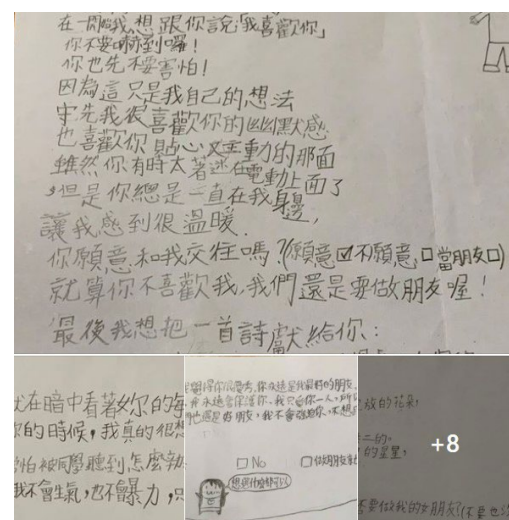 在一開始我想跟你說「我喜歡你」
你不要嚇到囉！
你也先不要害怕！
因為這只是我自己的想法
字先我很喜歡你的幽默感
也喜歡你貼心又主動的那面
雖然你有時太著迷在電動上面了
,但是你總是一直在我身邊,
讓我感到很溫暖.
你願意和我交往嗎？(願意☑不願意,□當朋友□)
就算你不喜歡我,我們還是要做朋友喔！
最後我想把一首詩獻給你：
在暗中看著妳的每
的時候，我真的很想
怕被同學聽到怎麼
我不會生氣,也不會暴力,只
你永遠是我最好的朋友
□No
放的花朵,
二的,
的星星,
要做我的女朋友?
+8